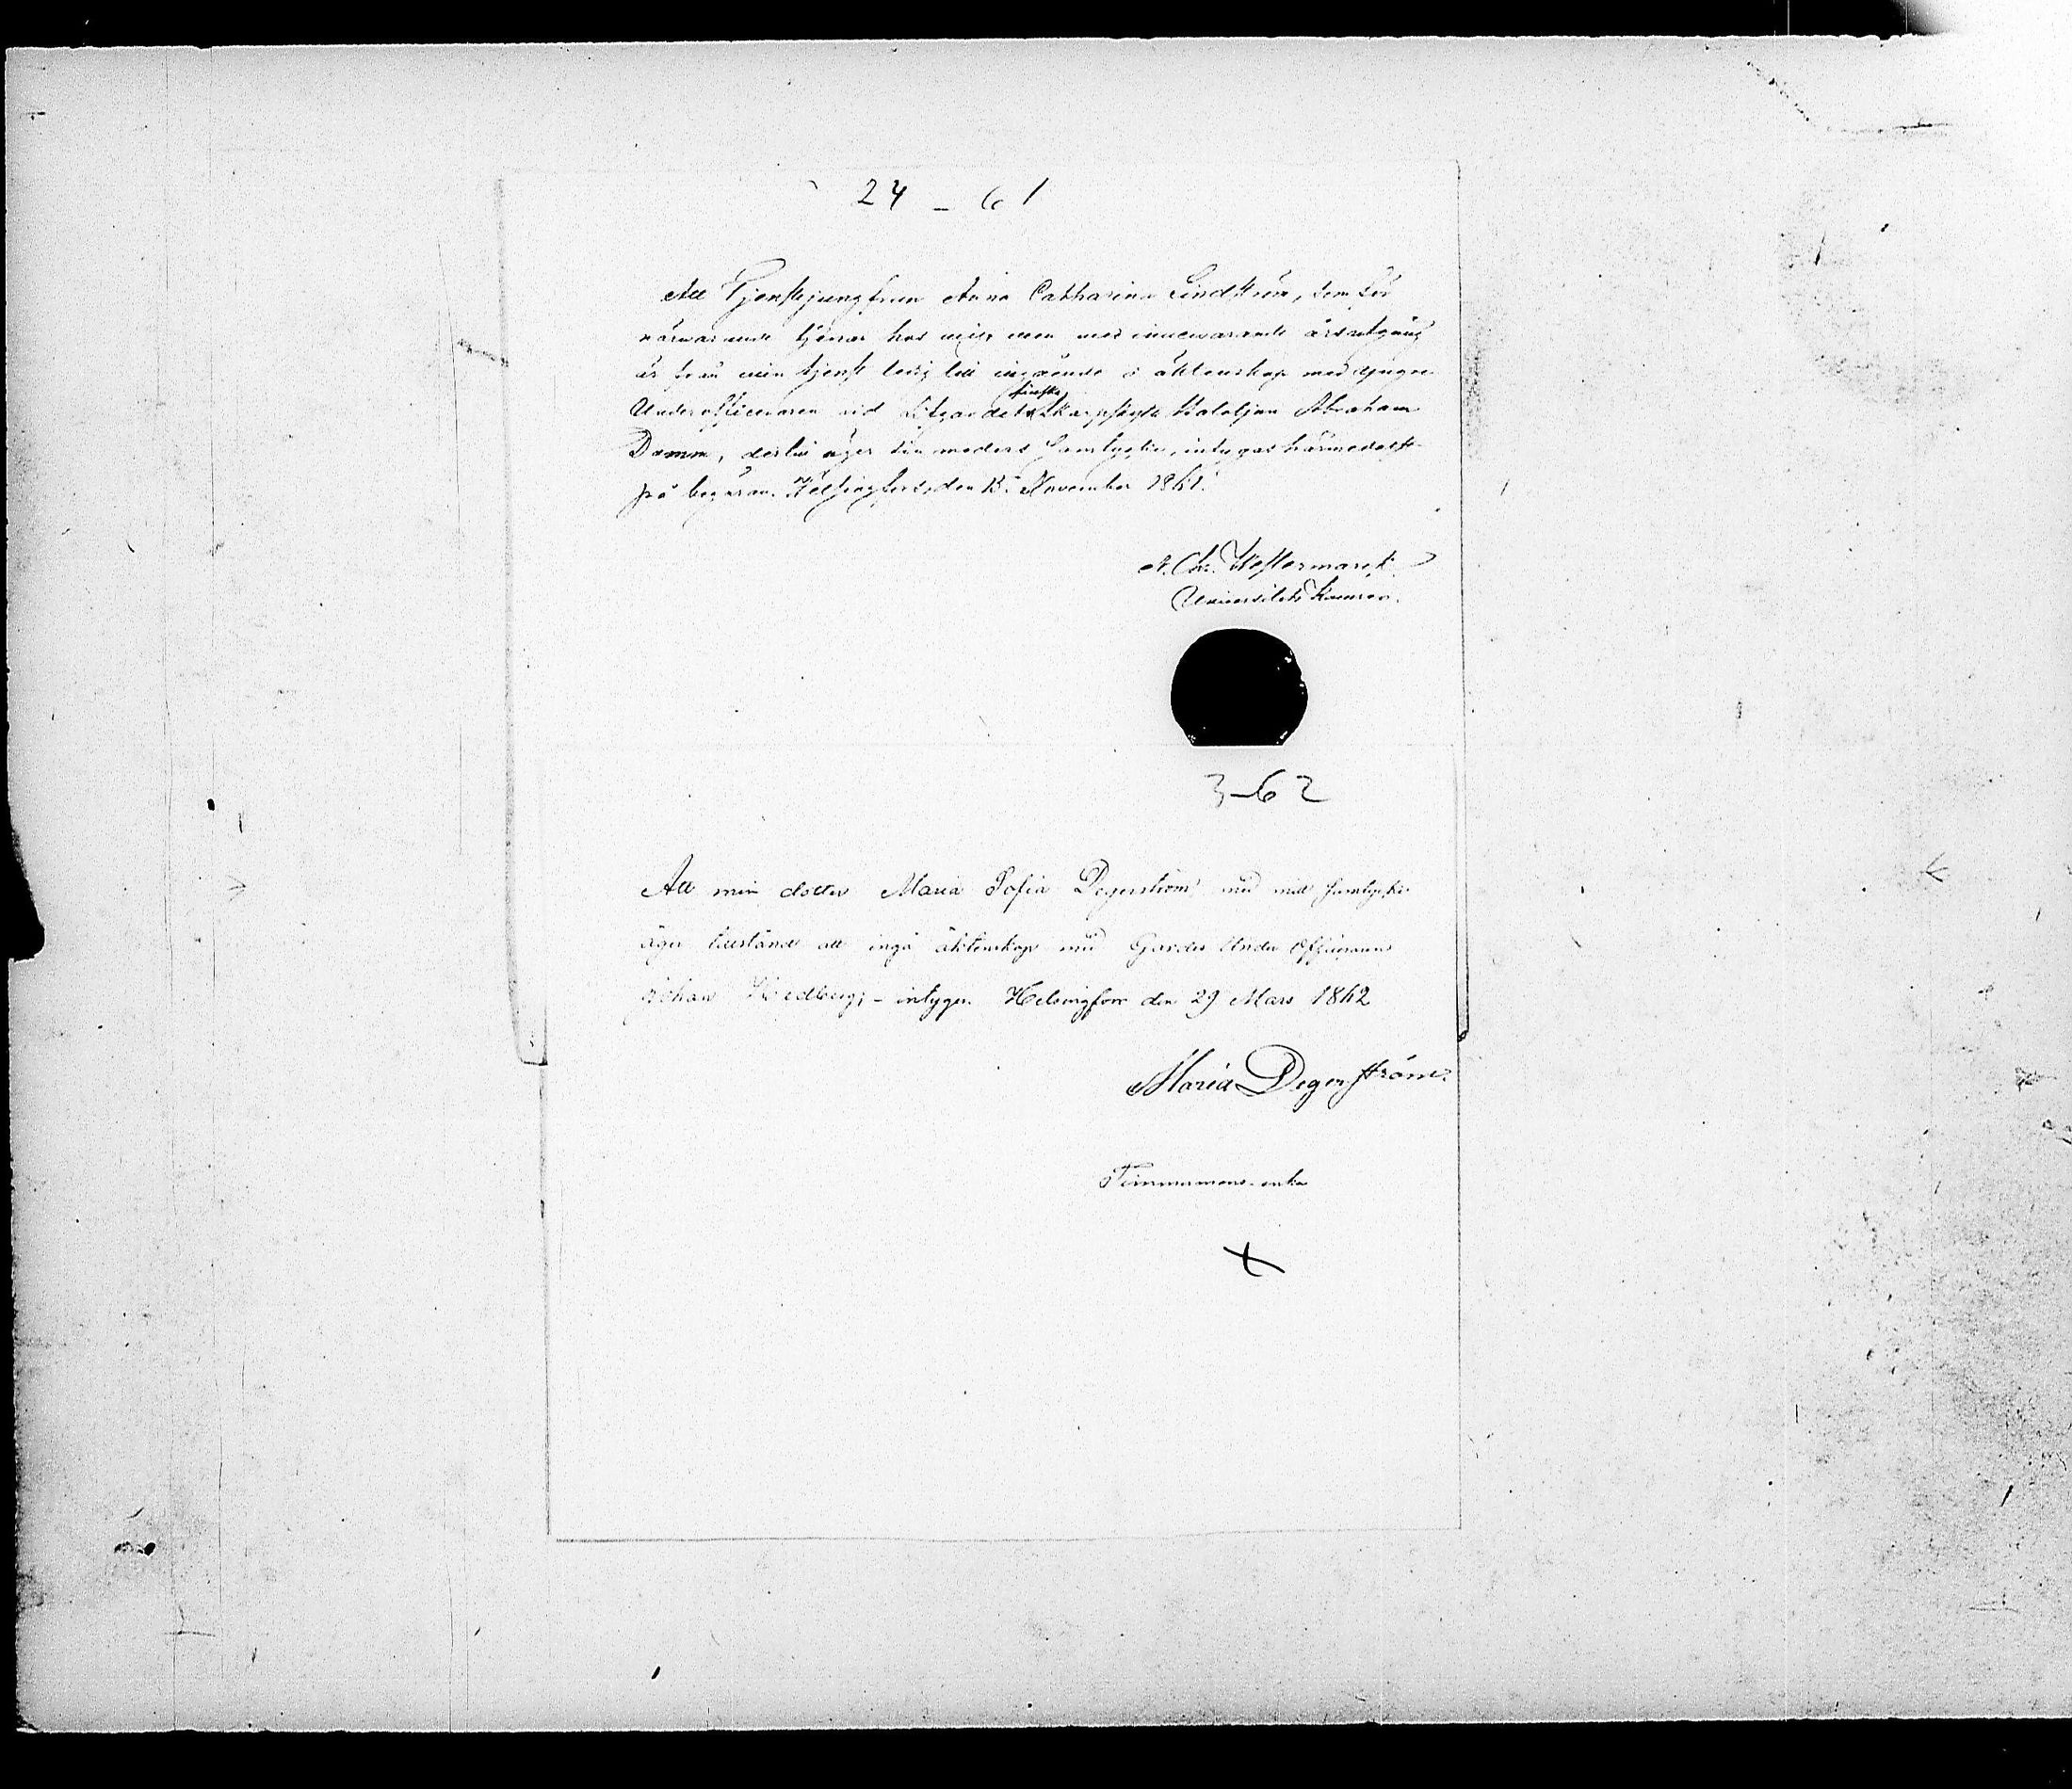 24 – 61
Att Tjenstejungfrun Anna Catharina Lindström, som för
närwarande tjenar hos mig men med innewarande årsutgång
är från min tjenst ledig till ingående i äktenskap med
Underofficeraren vid Lifgardets finska Skarpskytte Bataljon Abraham
Damm, dertill äger sin moders samtycke, intygas härmedelst
på begäran. Helsingfors, den 13 November 1861.
A. Chr. Westermarck
Universitets Kamrer.
3–62
Att min dotter Maria Sofia Degerström med mitt samtycke
äger tillstånd att ingå äktenskap med Gardes Under Officeraren
Johan – intygar. Helsingfors den 29 Mars 1862
Maria Degerström.
Timmermans enka